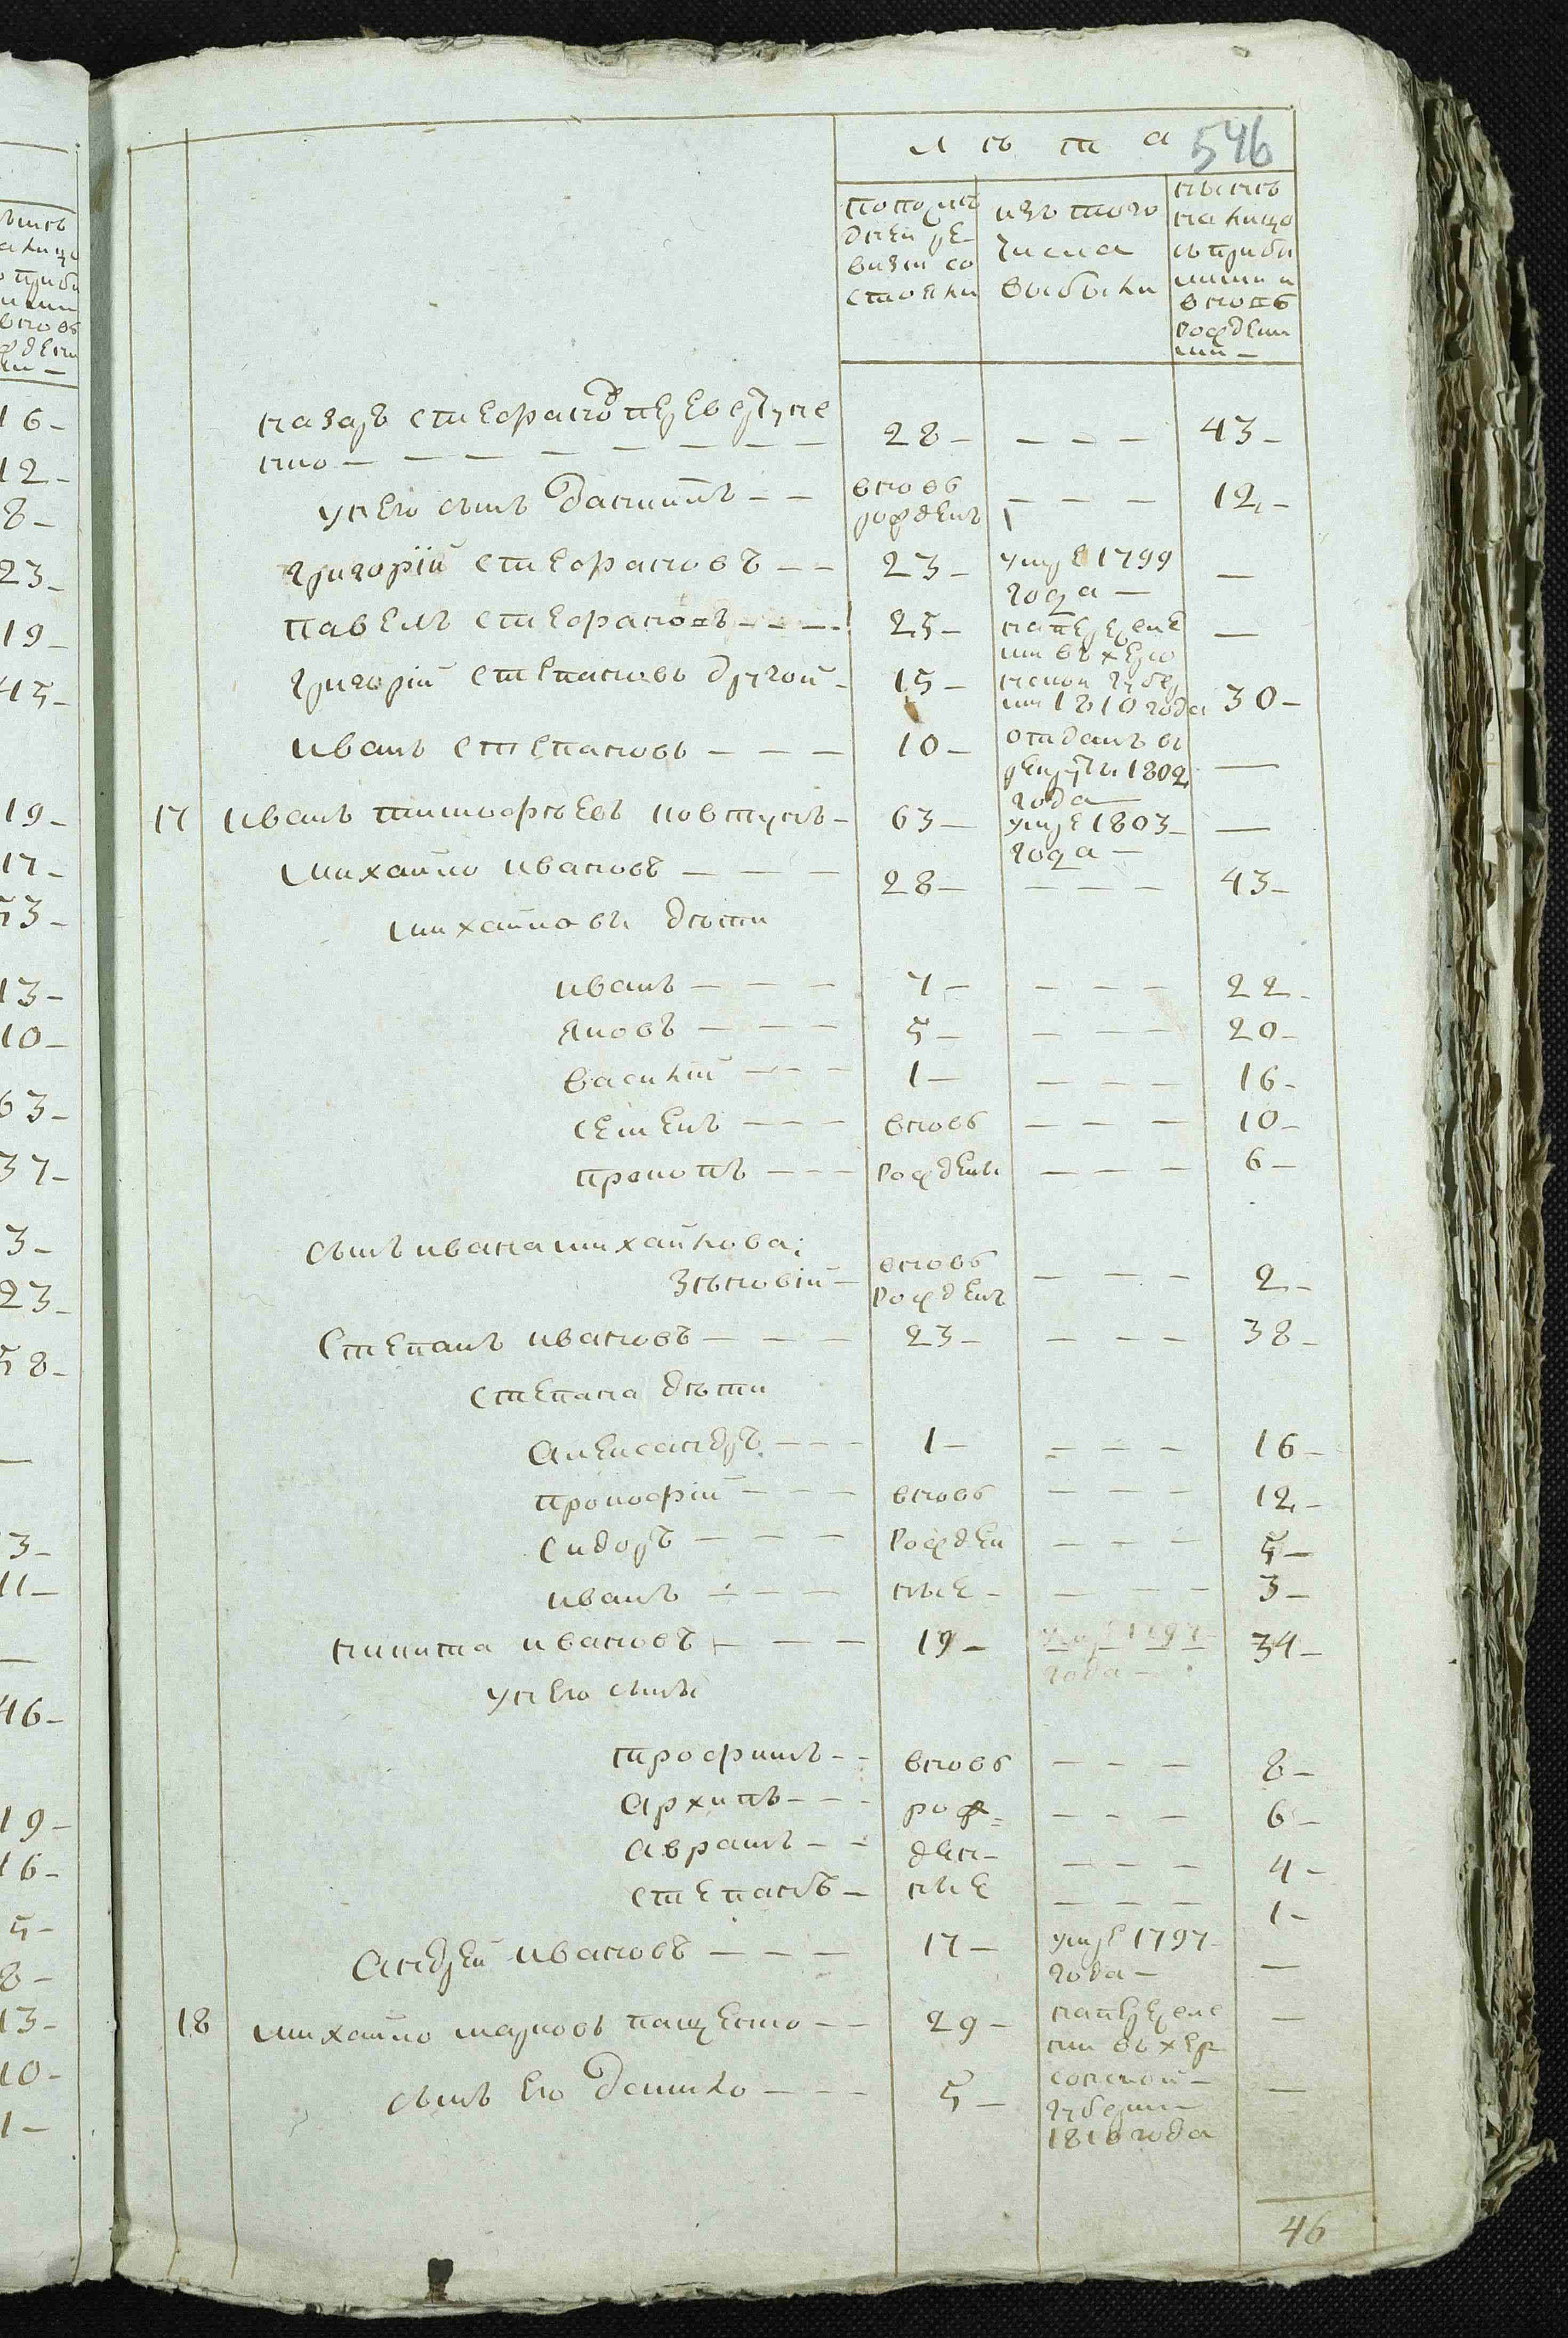 546
Лѣта
по послѣ
дней ре
визіи со
стояли
изъ того
числа
выбыли
нынѣ
на лицо
съ прибы
лыми и
вновь
рожден
ными —
назаръ Стефановъ
— 28 — — — — 43 —
у него сынъ Даниилъ — — вновь рожденъ — — — 12 —
григорій Стефановъ — — 23 — умре 1799 года — —
павелъ Стефановъ — — — 25 — на переселе —
григорій Степановъ другой — 15 — нии въ херсонской губернии 1810 года 30 —
иванъ Степановъ — — — 10 — отданъ въ рекруты 1802 года — —
17 иванъ тимофѣевъ ковтунъ — 63 — умре 1803 года — —
михайло ивановъ — — — 28 — — — — 43 —
михайловы дѣти
иванъ — — — 7 — — — — 22 —
яковъ — — — 5 — — — — 20 —
василій — — — 1 — — — — 16 —
семенъ — — — вновь — — — 10 —
прокопъ — — — рождены — — — 6 —
сынъ ивана михайлова:
зѣновій — вновь рожденъ — — — 2 —
Степанъ ивановъ — — — 23 — — — — 38 —
степана дѣти
Александръ — — — 1 — — — — 16 —
прокофій — — — вновь — — — 12 —
Сидоръ — — — рожден — — — 5 —
иванъ — — — ные — — — — 3 —
никита ивановъ — — — 19 — умре 1797 года — 34 —
у него сыны
трофимъ — — вновь — — — 8 —
Архипъ — — — рож= — — — 6 —
Аврамъ — — ден— — — — 4 —
степанъ — ные — — — 1 —
Андрей ивановъ — — — 17 — умре 1797 — года — —
18 михайло марковъ пащенко — — 29 — на переселе нии въ хер —
сынъ его Данило — — — 5 — сонской — губернии — 1810 года —
46